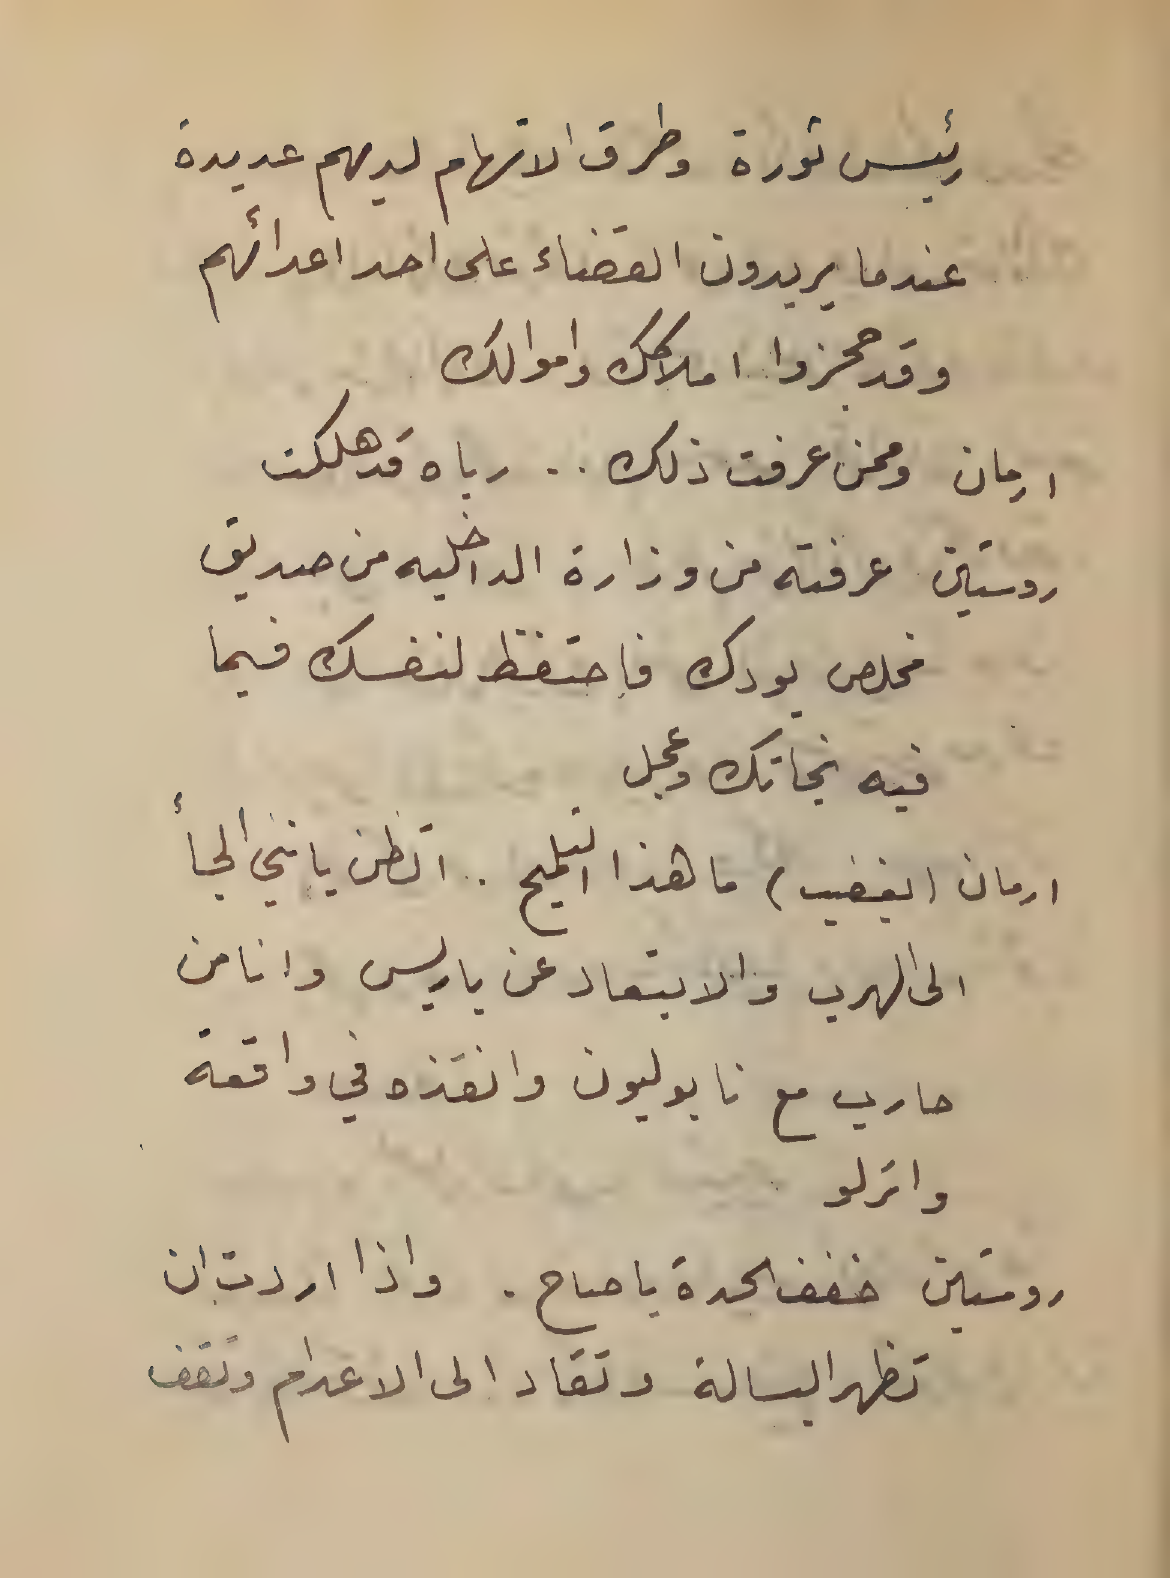 رئيس ثورة وطرق الاتهام لديهم عديدة
عندما يريدون القضاء على احد اعدائهم
وقد حجزوا املاكك واموالك
ارمان وممن عرفت ذلك .. رباه قد هلكت
روستين عرفته من وزارة الداخليه من صديق
مخلص يودك فاحتفظ لنفسك فيما
فيه نجاتك وعجل
ارمان (بغضب) ما هذا التلميح . اتظن يا بنني الجأ
الى الهرب والابتعاد عن باريس وانا من
حارب مع نابوليون وانقذه في واقعة
واترلو
روستين خفف الحدة يا صاح . واذا اردت ان
تظهر البسالة وتقاد الى الاعدام وتقف